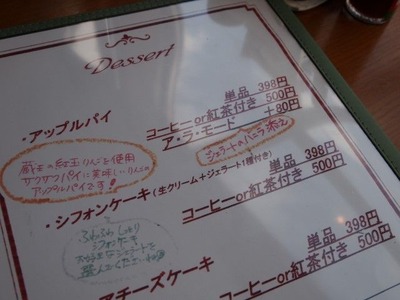 Dessert
・アップルパイ
単品 398円
コーヒーor紅茶付き 500円
ア・ラ・モード +80円
ジェラートのバニラ添え
蔵王の紅玉りんごを使用
サクサクパイに美味しいりんごの
アップルパイです!
・シフォンケーキ(生クリーム+ジェラート1種付き)
単品 398円
コーヒーor紅茶付き 500円
ふわふわ しっとり
シフォンケーキ
ジェラートで
単品 398円
コーヒーor紅茶付き 500円
アチーズケーキ
単品 398円